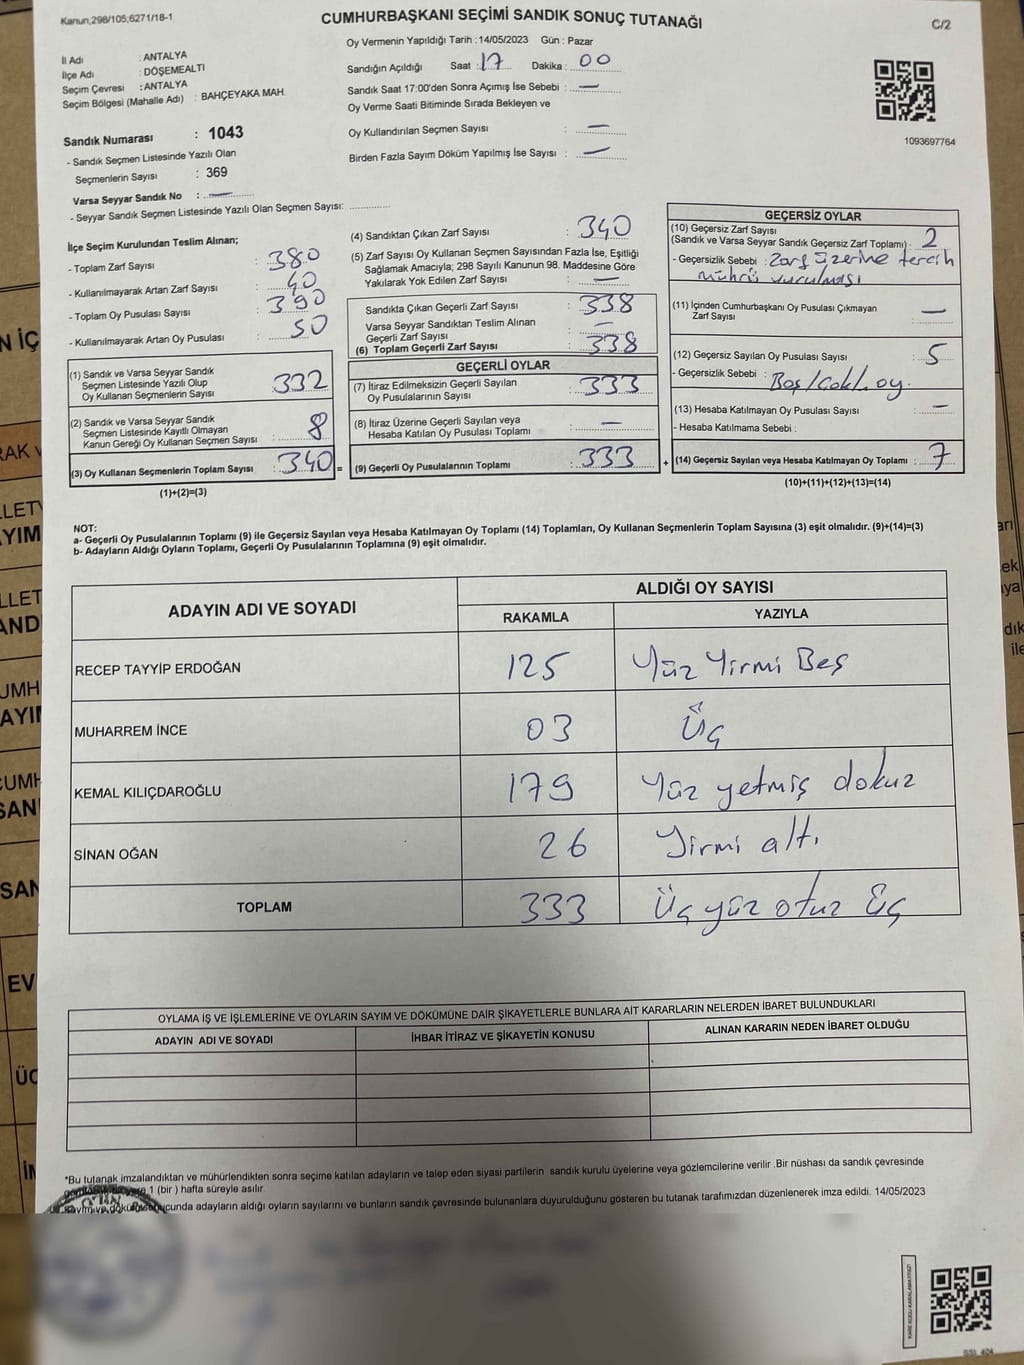 Kanun;298/105,6271/18-1
CUMHURBAŞKANI SEÇİMİ SANDIK SONUÇ TUTANAĞI
C/2
Oy Vermenin Yapıldığı Tarih : 14/05/2023 Gün : Pazar
İl Adı : ANTALYA
İlçe Adı : DÖŞEMEALTI
Seçim Çevresi : ANTALYA
Seçim Bölgesi (Mahalle Adı) : BAHÇEYAKA MAH.
Sandığın Açıldığı Saat : 17 Dakika : 00
Sandık Saat 17:00'den Sonra Açımış İse Sebebi : —
Oy Verme Saati Bitiminde Sırada Bekleyen ve
Oy Kullandırılan Seçmen Sayısı : —
Birden Fazla Sayım Döküm Yapılmış İse Sayısı : —
1093697764
Sandık Numarası : 1043
- Sandık Seçmen Listesinde Yazılı Olan
Seçmenlerin Sayısı : 369
Varsa Seyyar Sandık No : —
- Seyyar Sandık Seçmen Listesinde Yazılı Olan Seçmen Sayısı:
İlçe Seçim Kurulundan Teslim Alınan;
- Toplam Zarf Sayısı : 380
- Kullanılmayarak Artan Zarf Sayısı : 40
- Toplam Oy Pusulası Sayısı : 390
- Kullanılmayarak Artan Oy Pusulası : 50
(1) Sandık ve Varsa Seyyar Sandık
Seçmen Listesinde Yazılı Olup
Oy Kullanan Seçmenlerin Sayısı : 332
(2) Sandık ve Varsa Seyyar Sandık
Seçmen Listesinde Kayıtlı Olmayan
Kanun Gereği Oy Kullanan Seçmen Sayısı : 8
(3) Oy Kullanan Seçmenlerin Toplam Sayısı : 340 =
(1)+(2)=(3)
(4) Sandıktan Çıkan Zarf Sayısı : 340
(5) Zarf Sayısı Oy Kullanan Seçmen Sayısından Fazla İse, Eşitliği
Sağlamak Amacıyla; 298 Sayılı Kanunun 98. Maddesine Göre
Yakılarak Yok Edilen Zarf Sayısı : —
Sandıkta Çıkan Geçerli Zarf Sayısı : 338
Varsa Seyyar Sandıktan Teslim Alınan
Geçerli Zarf Sayısı : —
(6) Toplam Geçerli Zarf Sayısı : 338
GEÇERLİ OYLAR
(7) İtiraz Edilmeksizin Geçerli Sayılan
Oy Pusulalarının Sayısı : 333
(8) İtiraz Üzerine Geçerli Sayılan veya
Hesaba Katılan Oy Pusulası Toplamı : —
(9) Geçerli Oy Pusulalarının Toplamı : 333 +
GEÇERSİZ OYLAR
(10) Geçersiz Zarf Sayısı
(Sandık ve Varsa Seyyar Sandık Geçersiz Zarf Toplamı) : 2
- Geçersizlik Sebebi : Zarf üzerine tercih
mührü vurulması
(11) İçinden Cumhurbaşkanı Oy Pusulası Çıkmayan
Zarf Sayısı : —
(12) Geçersiz Sayılan Oy Pusulası Sayısı : 5
- Geçersizlik Sebebi : Boş/çokl. oy.
(13) Hesaba Katılmayan Oy Pusulası Sayısı : —
- Hesaba Katılmama Sebebi :
(14) Geçersiz Sayılan veya Hesaba Katılmayan Oy Toplamı : 7
(10)+(11)+(12)+(13)=(14)
NOT:
a- Geçerli Oy Pusulalarının Toplamı (9) ile Geçersiz Sayılan veya Hesaba Katılmayan Oy Toplamı (14) Toplamları, Oy Kullanan Seçmenlerin Toplam Sayısına (3) eşit olmalıdır. (9)+(14)=(3)
b- Adayların Aldığı Oyların Toplamı, Geçerli Oy Pusulalarının Toplamına (9) eşit olmalıdır.
ADAYIN ADI VE SOYADI
ALDIĞI OY SAYISI
RAKAMLA YAZIYLA
RECEP TAYYİP ERDOĞAN 125 Yüz Yirmi Beş
MUHARREM İNCE 03 Üç
KEMAL KILIÇDAROĞLU 179 Yüz yetmiş dokuz
SİNAN OĞAN 26 Yirmi altı
TOPLAM 333 Üç yüz otuz üç
OYLAMA İŞ VE İŞLEMLERİNE VE OYLARIN SAYIM VE DÖKÜMÜNE DAİR ŞİKAYETLERLE BUNLARA AİT KARARLARIN NELERDEN İBARET BULUNDUKLARI
ADAYIN ADI VE SOYADI İHBAR İTİRAZ VE ŞİKAYETİN KONUSU ALINAN KARARIN NEDEN İBARET OLDUĞU
*Bu tutanak imzalandıktan ve mühürlendikten sonra seçime katılan adayların ve talep eden siyasi partilerin sandık kurulu üyelerine veya gözlemcilerine verilir .Bir nüshası da sandık çevresinde
1 (bir ) hafta süreyle asılır.
adayların aldığı oyların sayılarını ve bunların sandık çevresinde bulunanlara duyurulduğunu gösteren bu tutanak tarafımızdan düzenlenerek imza edildi. 14/05/2023